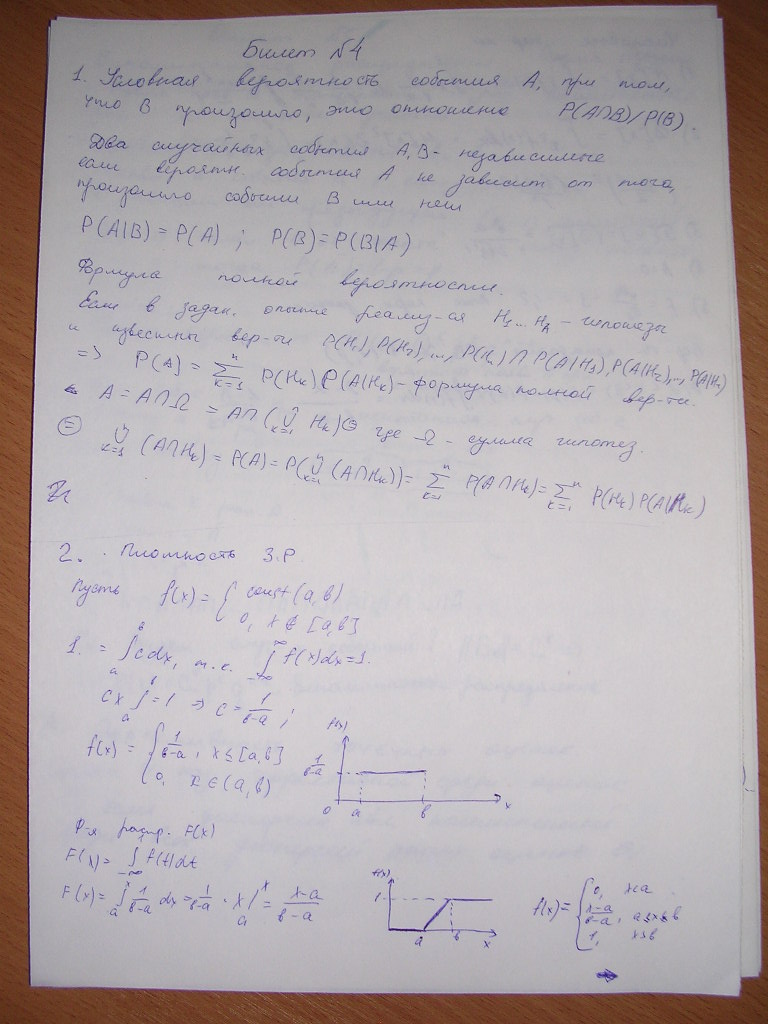 Билет №4
1. Условная вероятность события А, при том,
что В произошло, это отношение P(A∩B)/P(B).
Два случайных события А,В - независимые
если вероятн. события А не зависит от того,
произошло событие В или нет
P(A|B) = P(A) ; P(B) = P(B|A)
Формула полной вероятности.
Если в задан. опыте реализ-ся H₁... Hₙ - гипотезы
и известны вер-ти P(H₁), P(H₂), ..., P(Hₙ) П P(A|H₁), P(A|H₂)..., P(A|Hₙ)
=> P(A) = Σ k=1 n P(Hₖ) P(A|Hₖ) - формула полной вер-ти.
A = A∩Ω = A∩(∪ k=1 n Hₖ) ⊜ где Ω - сумма гипотез.
⊜ ∪ k=1 n (A∩Hₖ) = P(A) = P(∪ k=1 n (A∩Hₖ)) = Σ k=1 n P(A∩Hₖ) = Σ k=1 n P(Hₖ) P(A|Hₖ)
2. Плотность З.Р.
Пусть f(x) = { const (a,b)
0, x ∉ [a,b]
1. = ∫ₐᵇ c dx, т.к. ∫₋∞^∞ f(x)dx = 1.
cx |ₐᵇ = 1 => c = 1/(b-a) ;
f(x) = { 1/(b-a), x ≤ [a,b]
0, x ∈ (a,b)
f(x)
1/(b-a)
0 a b x
Ф-я распр. F(x)
F(x) = ∫₋∞^x f(t)dt
F(x) = ∫ₐ^x 1/(b-a) dx = 1/(b-a) · x |ₐ^x = (x-a)/(b-a)
f(x)
1
a b x
f(x) = { 0, x<a
(x-a)/(b-a), a≤x≤b
1, x>b